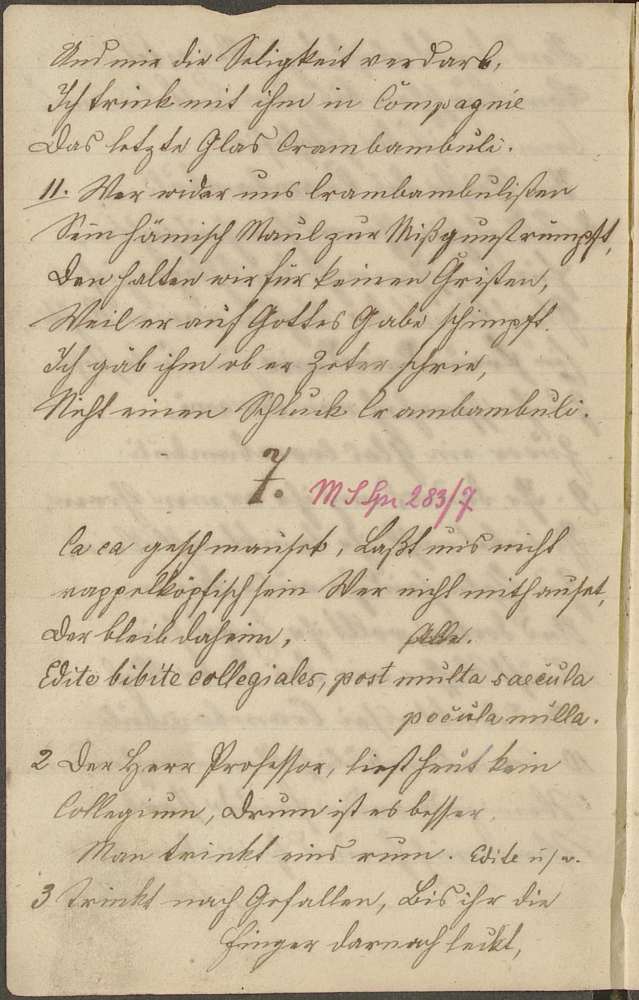 Und mir die Seligkeit verdarb,
Ich trink mit ihm in Compagnie
Das letzte Glas Crambambuli.
11. Wer wider uns Crambambulisten
Sein hämisch Maul zur Mißgunst rümpft,
Den halten wir für keinen Cristen,
Weil er auf Gottes Gabe schimpft.
Ich gäb ihm ob er Zeter schrie,
Nicht einen Schluck Crambambuli.
7. M S Gu 283/7
Ca ca geschmauset, Laßt uns nicht
rappelköpfisch sein Wer nicht mithauset,
Der bleib daheim, Alle.
Edite bibite collegiales, post multa saecula
pocula nulla.
2 Der Herr Professor, liest heut kein
Collegium, Drum ist es besser,
Man trinkt eins rum. Edite u s w.
3 Trinkt nach Gefallen, Bis ihr die
Finger darnach leckt,